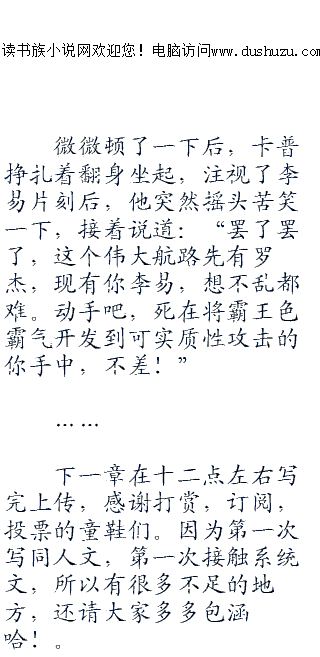 读书族小说网欢迎您！电脑访问www.dushuzu.com
微微顿了一下后，卡普
挣扎着翻身坐起，注视了李
易片刻后，他突然摇头苦笑
一下，接着说道：“罢了罢
了，这个伟大航路先有罗
杰，现有你李易，想不乱都
难。动手吧，死在将霸王色
霸气开发到可实质性攻击的
你手中，不差！”
……
下一章在十二点左右写
完上传，感谢打赏，订阅，
投票的童鞋们。因为第一次
写同人文，第一次接触系统
文，所以有很多不足的地
方，还请大家多多包涵
哈！。